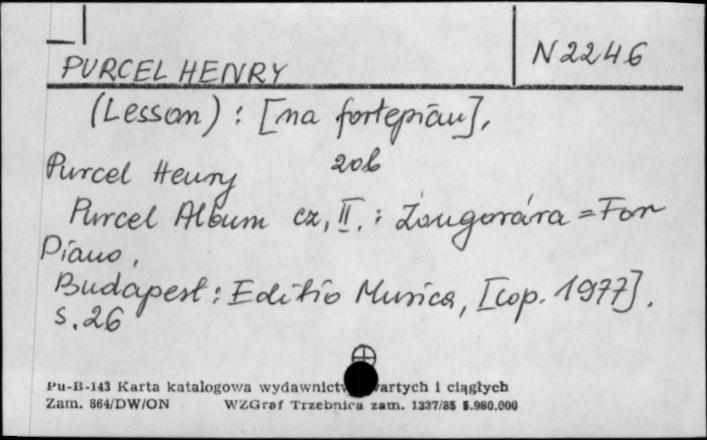 PURCEL HENRY
N 2246
(Lesson) : [na fortepian],
Purcel Henry zob
Purcel Album cz, II. : Zongorára = For
Piano,
Budapest : Editio Musica, [cop. 1977].
s. 26
Pu-B-143 Karta katalogowa wydawnictw zwartych i ciągłych
Zam. 864/DW/ON WZGraf Trzebnica zam. 1337/85 5.980.000